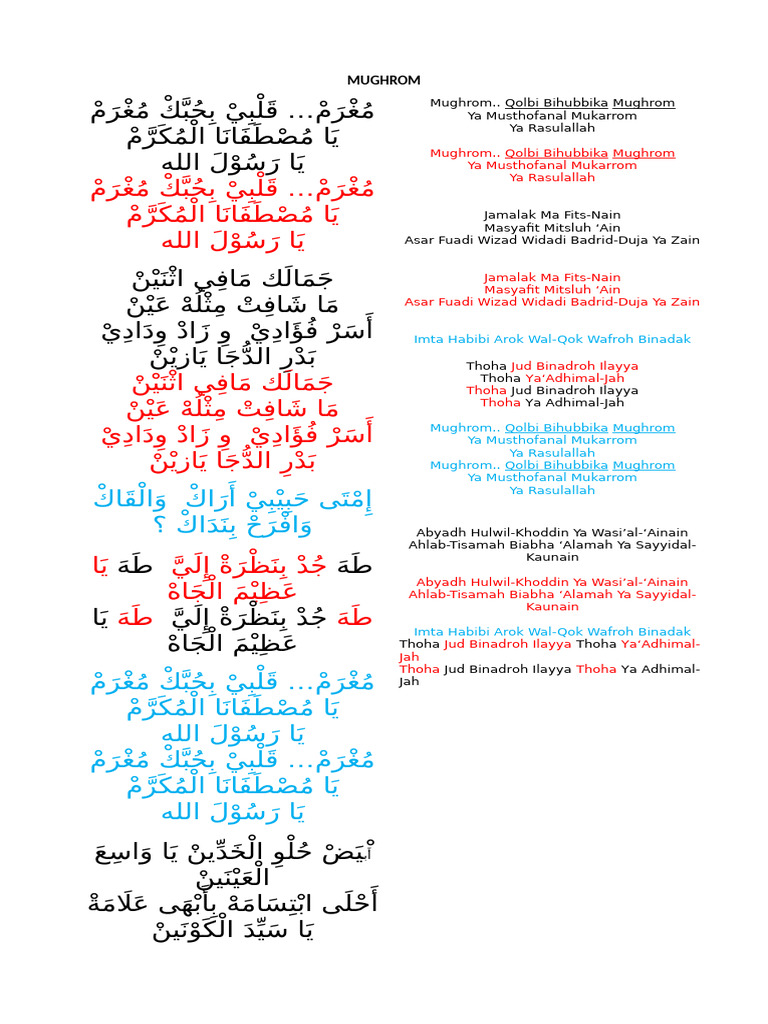 MUGHROM
مُغْرَمْ... قَلْبِيْ بِحُبَّكْ مُغْرَمْ
يَا مُصْطَفَانَا الْمُكَرَّمْ
يَا رَسُوْلَ الله
مُغْرَمْ... قَلْبِيْ بِحُبَّكْ مُغْرَمْ
يَا مُصْطَفَانَا الْمُكَرَّمْ
يَا رَسُوْلَ الله
جَمَالَك مَافِى اثْنَيْنْ
مَا شَافِتْ مِثْلُهْ عَيْنْ
أَسَرْ فُؤَادِيْ وِ زَادْ وِدَادِيْ
بَدْرِ الدُّجَا يَازيْنْ
جَمَالَك مَافِى اثْنَيْنْ
مَا شَافِتْ مِثْلُهْ عَيْنْ
أَسَرْ فُؤَادِيْ وِ زَادْ وِدَادِيْ
بَدْرِ الدُّجَا يَازيْنْ
إِمْتَى حَبِيْبِيْ أَرَاكْ وَالْقَاكْ
وَافْرَحْ بِنَدَاكْ ؟
طَهَ جُدْ بِنَظْرَةْ إِلَيَّ طَهَ يَا
عَظِيْمَ الْجَاهْ
طَهَ جُدْ بِنَظْرَةْ إِلَيَّ طَهَ يَا
عَظِيْمَ الْجَاهْ
مُغْرَمْ... قَلْبِيْ بِحُبَّكْ مُغْرَمْ
يَا مُصْطَفَانَا الْمُكَرَّمْ
يَا رَسُوْلَ الله
مُغْرَمْ... قَلْبِيْ بِحُبَّكْ مُغْرَمْ
يَا مُصْطَفَانَا الْمُكَرَّمْ
يَا رَسُوْلَ الله
اَبْيَضْ حُلْوِ الْخَدِّينْ يَا وَاسِعَ
الْعَيْنَينْ
أَحْلَى ابْتِسَامَهْ بِأَبْهَى عَلَامَةْ
يَا سَيِّدَ الْكَوْنَينْ
Mughrom.. Qolbi Bihubbika Mughrom
Ya Musthofanal Mukarrom
Ya Rasulallah
Mughrom.. Qolbi Bihubbika Mughrom
Ya Musthofanal Mukarrom
Ya Rasulallah
Jamalak Ma Fits-Nain
Masyafit Mitsluh ‘Ain
Asar Fuadi Wizad Widadi Badrid-Duja Ya Zain
Jamalak Ma Fits-Nain
Masyafit Mitsluh ‘Ain
Asar Fuadi Wizad Widadi Badrid-Duja Ya Zain
Imta Habibi Arok Wal-Qok Wafroh Binadak
Thoha Jud Binadroh Ilayya
Thoha Ya‘Adhimal-Jah
Thoha Jud Binadroh Ilayya
Thoha Ya Adhimal-Jah
Mughrom.. Qolbi Bihubbika Mughrom
Ya Musthofanal Mukarrom
Ya Rasulallah
Mughrom.. Qolbi Bihubbika Mughrom
Ya Musthofanal Mukarrom
Ya Rasulallah
Abyadh Hulwil-Khoddin Ya Wasi’al-‘Ainain
Ahlab-Tisamah Biabha ‘Alamah Ya Sayyidal-
Kaunain
Abyadh Hulwil-Khoddin Ya Wasi’al-‘Ainain
Ahlab-Tisamah Biabha ‘Alamah Ya Sayyidal-
Kaunain
Imta Habibi Arok Wal-Qok Wafroh Binadak
Thoha Jud Binadroh Ilayya Thoha Ya‘Adhimal-
Jah
Thoha Jud Binadroh Ilayya Thoha Ya Adhimal-
Jah